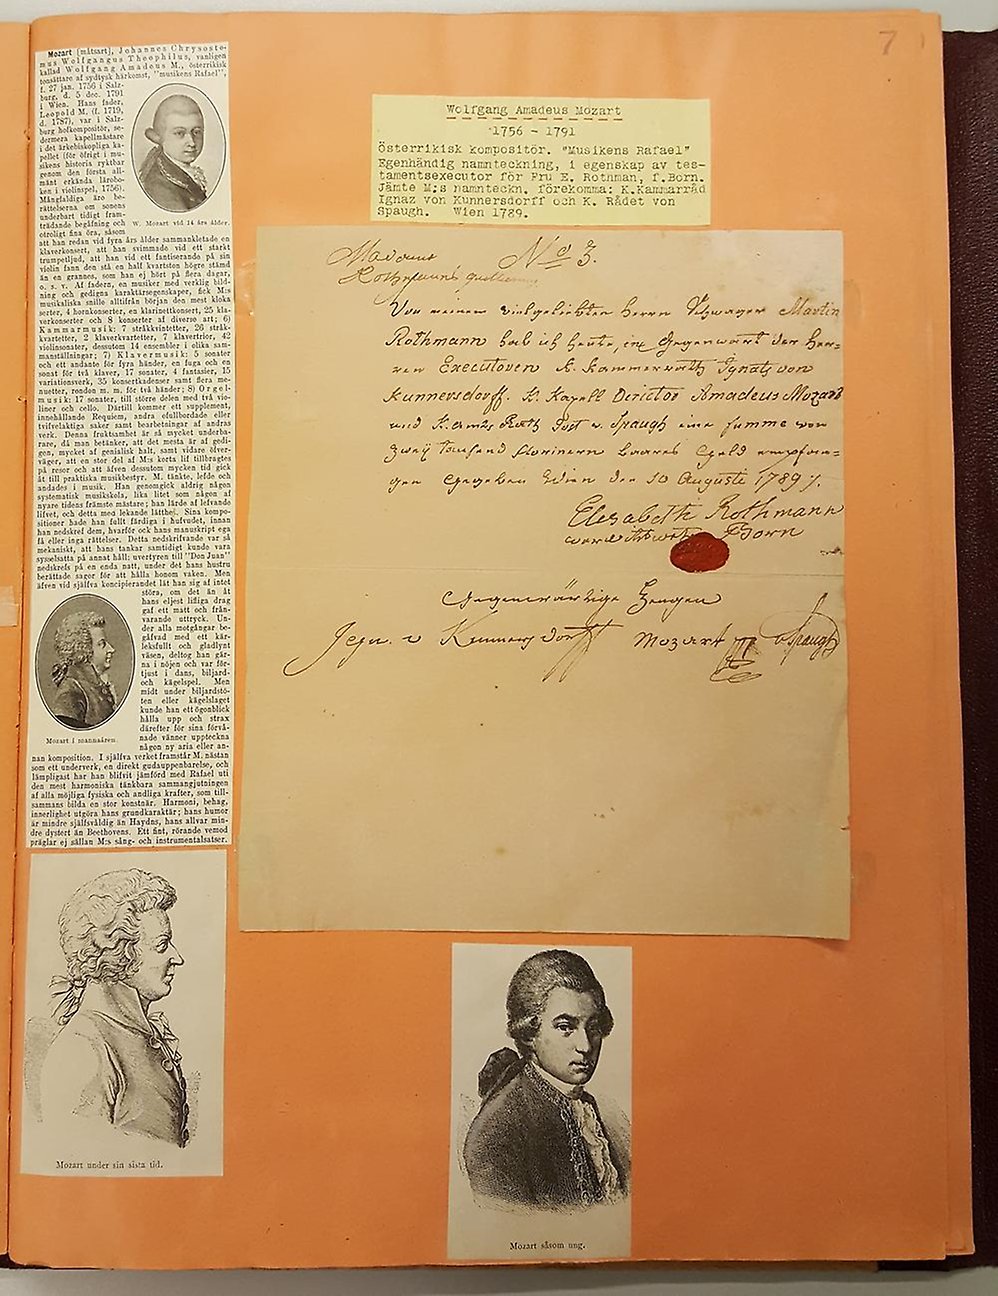 7
Mozart [måtsart], Johannes Chrysosto-
mus Wolfgangus Theophilus, vanligen
kallad Wolfgang Amadeus M., österrikisk
tonsättare af sydtysk härkomst, "musikens Rafael",
f. 27 jan. 1756 i Salz-
burg, d. 5 dec. 1791
i Wien. Hans fader,
Leopold M. (f. 1719,
d. 1787), var i Salz-
burg hofkompositör, se-
dermera kapellmästare
i det ärkebiskopliga ka-
pellet (för öfrigt i mu-
sikens historia ryktbar
genom den första all-
mänt erkända lärobo-
ken i violinspel, 1756).
Mångfaldiga äro be-
rättelserna om sonens
underbart tidigt fram-
trädande begåfning och
otroligt fina öra, såsom
W. Mozart vid 14 års ålder.
att han redan vid fyra års ålder sammankletade en
klaverkonsert, att han svimmade vid ett starkt
trumpetljud, att han vid ett fantiserande på sin
violin fann den stå en half kvartston högre stämd
än en grannes, som han ej hört på flera dagar,
o. s. v. Af fadern, en musiker med verklig bild-
ning och gedigna karaktärsegenskaper, fick M:s
musikaliska snille alltifrån början den mest kloka
serter, 4 hornkonserter, en klarinettkonsert, 25 kla-
verkonserter och 8 konserter af diverse art; 6)
Kammarmusik: 7 stråkkvintetter, 26 stråk-
kvartetter, 2 klaverkvartetter, 7 klavertrior, 42
violinsonater, dessutom 14 ensembler i olika sam-
manställningar; 7) Klavermusik: 5 sonater
och ett andante för fyra händer, en fuga och en
sonat för två klaver, 17 sonater, 4 fantasier, 15
variationsverk, 35 konsertkadenser samt flera me-
nuetter, rondon m. m. för två händer; 8) Orgel-
musik: 17 sonater, till större delen med två vio-
liner och cello. Därtill kommer ett supplement,
innehållande Requiem, andra ofullbordade eller
tvifvelaktiga saker samt bearbetningar af andras
verk. Denna fruktsamhet är så mycket underba-
rare, då man betänker, att det mesta är af gedi-
gen, mycket af genialisk halt, samt vidare öfver-
väger, att en stor del af M:s korta lif tillbragtes
på resor och att äfven dessutom mycken tid gick
åt till praktiska musikbestyr. M. tänkte, lefde och
andades i musik. Han genomgick aldrig någon
systematisk musikskola, lika litet som någon af
nyare tidens främste mästare; han lärde af lefvande
lifvet, och detta med lekande lätthet. Sina kompo-
sitioner hade han fullt färdiga i hufvudet, innan
han nedskref dem, hvarför ock hans manuskript ega
få eller inga rättelser. Detta nedskrifvande var så
mekaniskt, att hans tankar samtidigt kunde vara
sysselsatta på annat håll: uvertyren till "Don Juan"
nedskrefs på en enda natt, under det hans hustru
berättade sagor för att hålla honom vaken. Men
äfven vid själfva koncipierandet lät han sig af intet
störa, om det än åt
hans eljest lifliga drag
gaf ett matt och från-
varande uttryck. Un-
der alla motgångar be-
gåfvad med ett kär-
leksfullt och gladlynt
väsen, deltog han gär-
na i nöjen och var för-
tjust i dans, biljard-
och kägelspel. Men
midt under biljardstö-
ten eller kägelslaget
kunde han ett ögonblick
hålla upp och strax
därefter för sina förvå-
nade vänner uppteckna
någon ny aria eller an-
Mozart i mannaåren.
nan komposition. I själfva verket framstår M. nästan
som ett underverk, en direkt gudauppenbarelse, och
lämpligast har han blifvit jämförd med Rafael uti
den mest harmoniska tänkbara sammangjutningen
af alla möjliga fysiska och andliga krafter, som till-
sammans bilda en stor konstnär. Harmoni, behag,
innerlighet utgöra hans grundkaraktär; hans humor
är mindre själfsvåldig än Haydns, hans allvar min-
dre dystert än Beethovens. Ett fint, rörande vemod
präglar ej sällan M:s sång- och instrumentalsatser.
Mozart under sin sista tid.
Wolfgang Amadeus Mozart
1756 - 1791
Österrikisk kompositör. "Musikens Rafael"
Egenhändig namnteckning, i egenskap av tes-
tamentsexecutor för Fru E. Rothman, f.Born.
Jämte M:s namnteckn. förekomma: K.Kammarråd
Ignaz von Kunnersdorff och K. Rådet von
Spaugh. Wien 1789.
Madame No 3.
Rothmanns
Von meinem vielgeliebten Herrn Schwager Martin
Rothmann hab ich heute, in Gegenwart der Her=
ren Executoren K. Kammerrath Ignatz von
Kunnersdorff. K. Kapell Director Amadeus Mozart
und K. Rath v. Spaugh eine summe von
Zweÿ tousend Florinern baares Geld empfan=
gen Gegeben Wien den 10 Auguste 1789
Elisabeth Rothmann
Born
Gegenwärtige Zeugen
Ign. v Kunnersdorff Mozart v Spaugh
Mozart såsom ung.